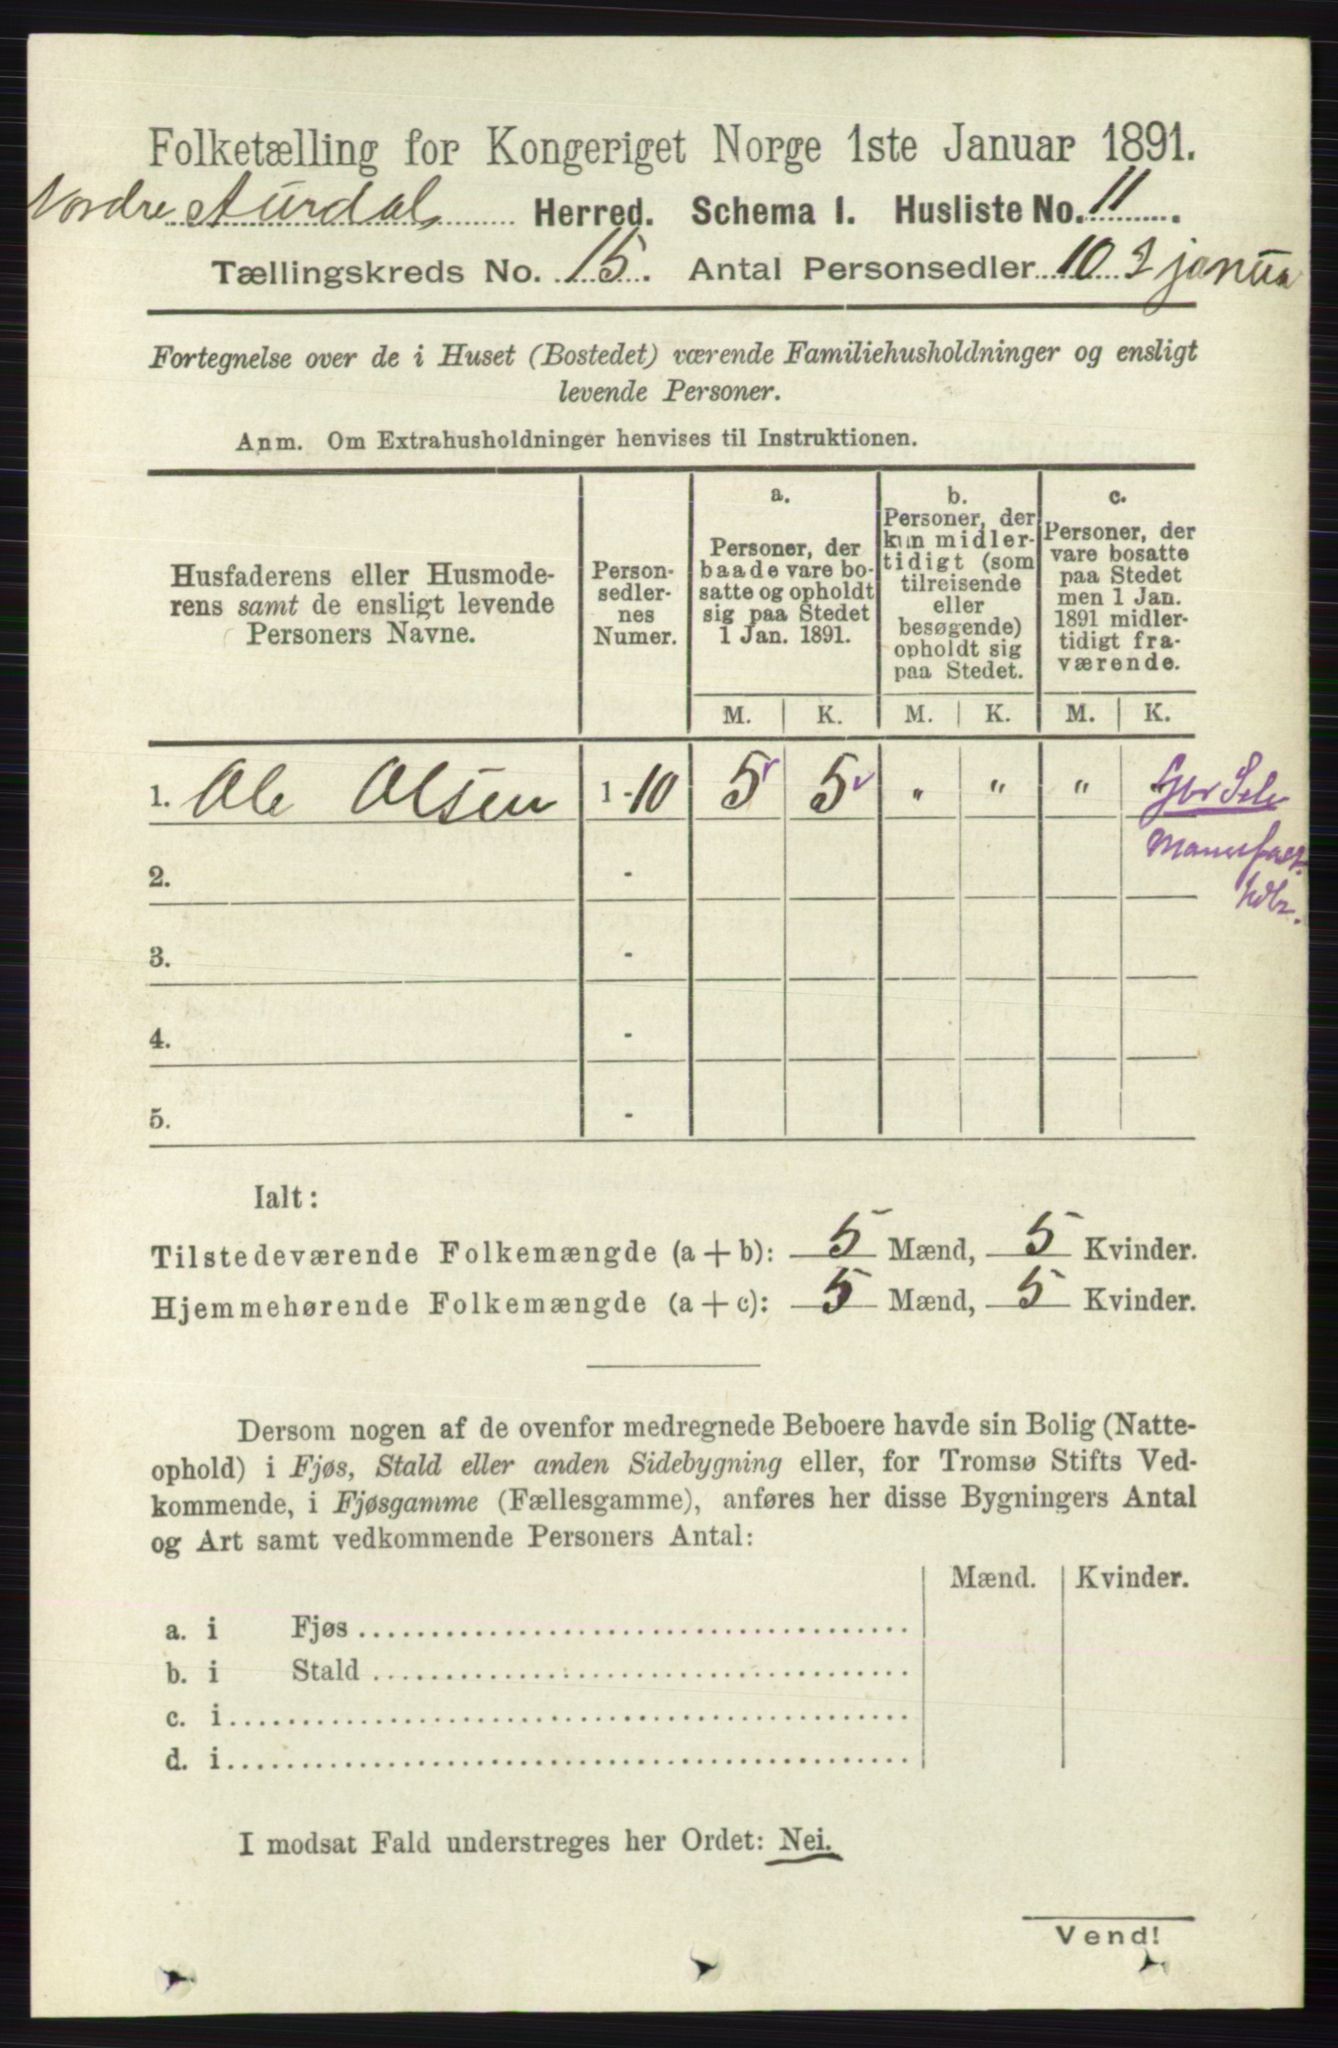 Folketælling for Kongeriget Norge 1ste Januar 1891.
Nordre Aurdal Herred. Schema I. Husliste No. 11.
Tællingskreds No. 15. Antal Personsedler 10 2 janua
Fortegnelse over de i Huset (Bostedet) værende Familiehusholdninger og ensligt
levende Personer.
Anm. Om Extrahusholdninger henvises til Instruktionen.
Husfaderens eller Husmode-
rens samt de ensligt levende
Personers Navne.
Person-
sedler-
nes
Numer.
a.
Personer, der
baade vare bo-
satte og opholdt
sig paa Stedet
1 Jan. 1891.
b.
Personer, der
kun midler-
tidigt (som
tilreisende
eller
besøgende)
opholdt sig
paa Stedet.
c.
Personer, der
vare bosatte
paa Stedet
men 1 Jan.
1891 midler-
tidigt fra-
værende.
M. K. M. K. M. K.
1. Ole Olsen 1 - 10 5 5 " " "
2. -
3. -
4. -
5. -
Ialt:
Tilstedeværende Folkemængde (a + b): 5 Mænd, 5 Kvinder.
Hjemmehørende Folkemængde (a + c): 5 Mænd, 5 Kvinder.
Dersom nogen af de ovenfor medregnede Beboere havde sin Bolig (Natte-
ophold) i Fjøs, Stald eller anden Sidebygning eller, for Tromsø Stifts Ved-
kommende, i Fjøsgamme (Fællesgamme), anføres her disse Bygningers Antal
og Art samt vedkommende Personers Antal:
Mænd. Kvinder.
a. i Fjøs
b. i Stald
c. i
d. i
I modsat Fald understreges her Ordet: Nei.
Vend!